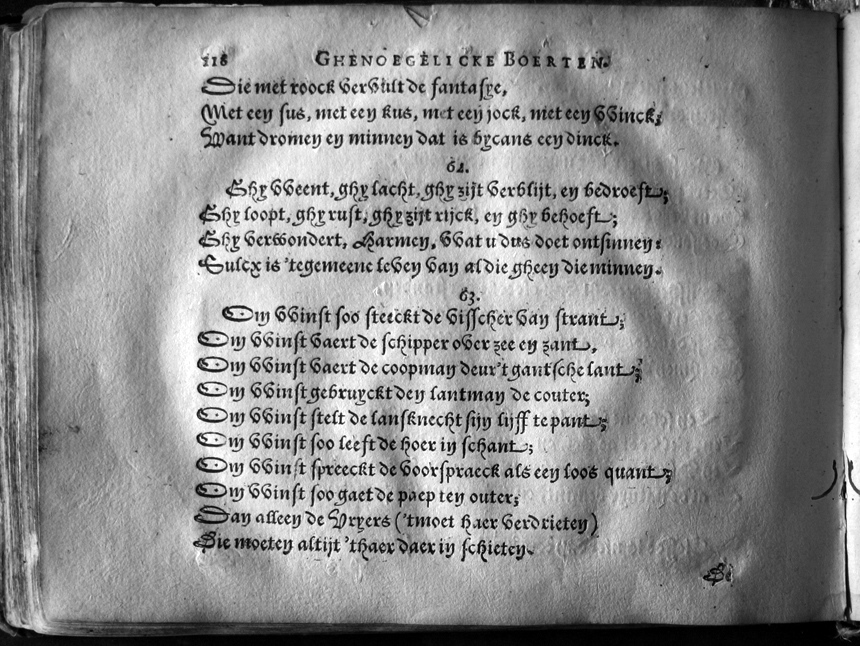 118 GHENOEGELICKE BOERTEN.
Die met roock vervult de fantasye,
Met een sus, met een kus, met een jock, met een VVinck;
Want dromen en minnen dat is bycans een dinck.
62.
Ghy VVeent, ghy lacht, ghy zijt verblijt, en bedroeft;
Ghy loopt, ghy rust, ghy zijt rijck, en ghy behoeft;
Ghy verwondert, Harmen, VVat u dus doet ontsinnen:
Sulcx is 'tgemeene leven van al die gheen die minnen.
63.
Om VVinst soo steeckt de visscher van strant;
Om VVinst vaert de schipper over zee en zant,
Om VVinst vaert de coopman deur't gantsche lant;
Om VVinst gebruyckt den lantman de couter;
Om VVinst stelt de lansknecht sijn lijff te pant;
Om VVinst soo leeft de hoer in schant;
Om VVinst spreeckt de voorspraeck als een loos quant;
Om VVinst soo gaet de paep ten outer;
Dan alleen de Vryers ('tmoet haer verdrieten)
Die moeten altijt 'thaer daer in schieten.